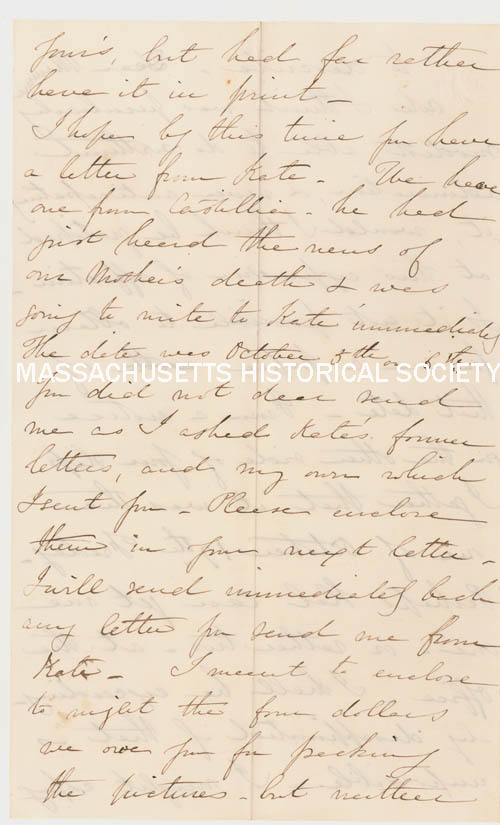 yours, but had far rather
have it in print –
I hope by this time you have
a letter from Kate – We have
one from Castillia – he had
just heard the news of
our Mother's death & was
going to write to Kate immediately
The date was October 5th or 6th
MASSACHUSETTS HISTORICAL SOCIETY
You did not dear send
me as I asked Kate's former
letters, and my own which
I sent you – Please enclose
them in your next letter –
I will send immediately back
any letter you send me from
Kate – I meant to enclose
to night the four dollars
we owe you for packing
the pictures – but neither